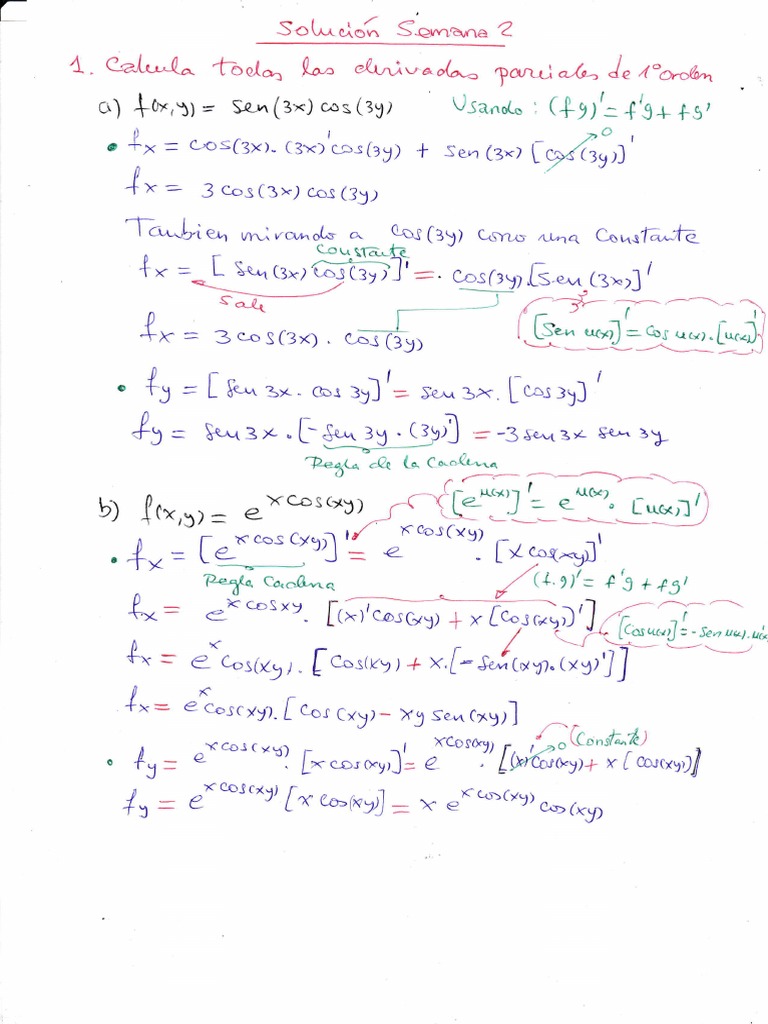 Solución Semana 2
1. Calcula todas las derivadas parciales de 1º orden
a) f(x,y) = sen(3x) cos(3y) Usando: (fg)' = f'g + fg'
• fx = cos(3x).(3x)' cos(3y) + sen(3x) [cos(3y)]' 0
fx = 3 cos(3x) cos(3y)
Tambien mirando a cos(3y) como una constante
Constante
fx = [sen(3x) cos(3y)]' = . cos(3y).[sen(3x)]'
Sale 3
fx = 3 cos(3x) . cos(3y) [Sen u(x)]' = cos u(x).[u(x)]'
• fy = [sen 3x . cos 3y]' = sen 3x. [cos 3y]'
fy = sen 3x . [-sen 3y . (3y)'] = -3 sen 3x sen 3y
Regla de la Cadena
b) f(x,y) = e^{x cos(xy)} [e^{u(x)}]' = e^{u(x)} . [u(x)]'
• fx = [e^{x cos(xy)}]' = e^{x cos(xy)} . [x cos(xy)]'
Regla Cadena (f.g)' = f'g + fg'
fx = e^{x cos xy} . [(x)' cos(xy) + x [cos(xy)]'] [cos u(x)]' = -sen u(x). u'(x)
fx = e^x cos(xy). [cos(xy) + x.[-sen(xy).(xy)']]
fx = e^x cos(xy). [cos(xy) - xy sen(xy)]
(Constante)
• fy = e^{x cos(xy)} . [x cos(xy)]' = e^{x cos(xy)} . [(x)' 0 cos(xy) + x [cos(xy)]]
fy = e^{x cos(xy)} [x cos(xy)] = x e^{x cos(xy)} cos(xy)